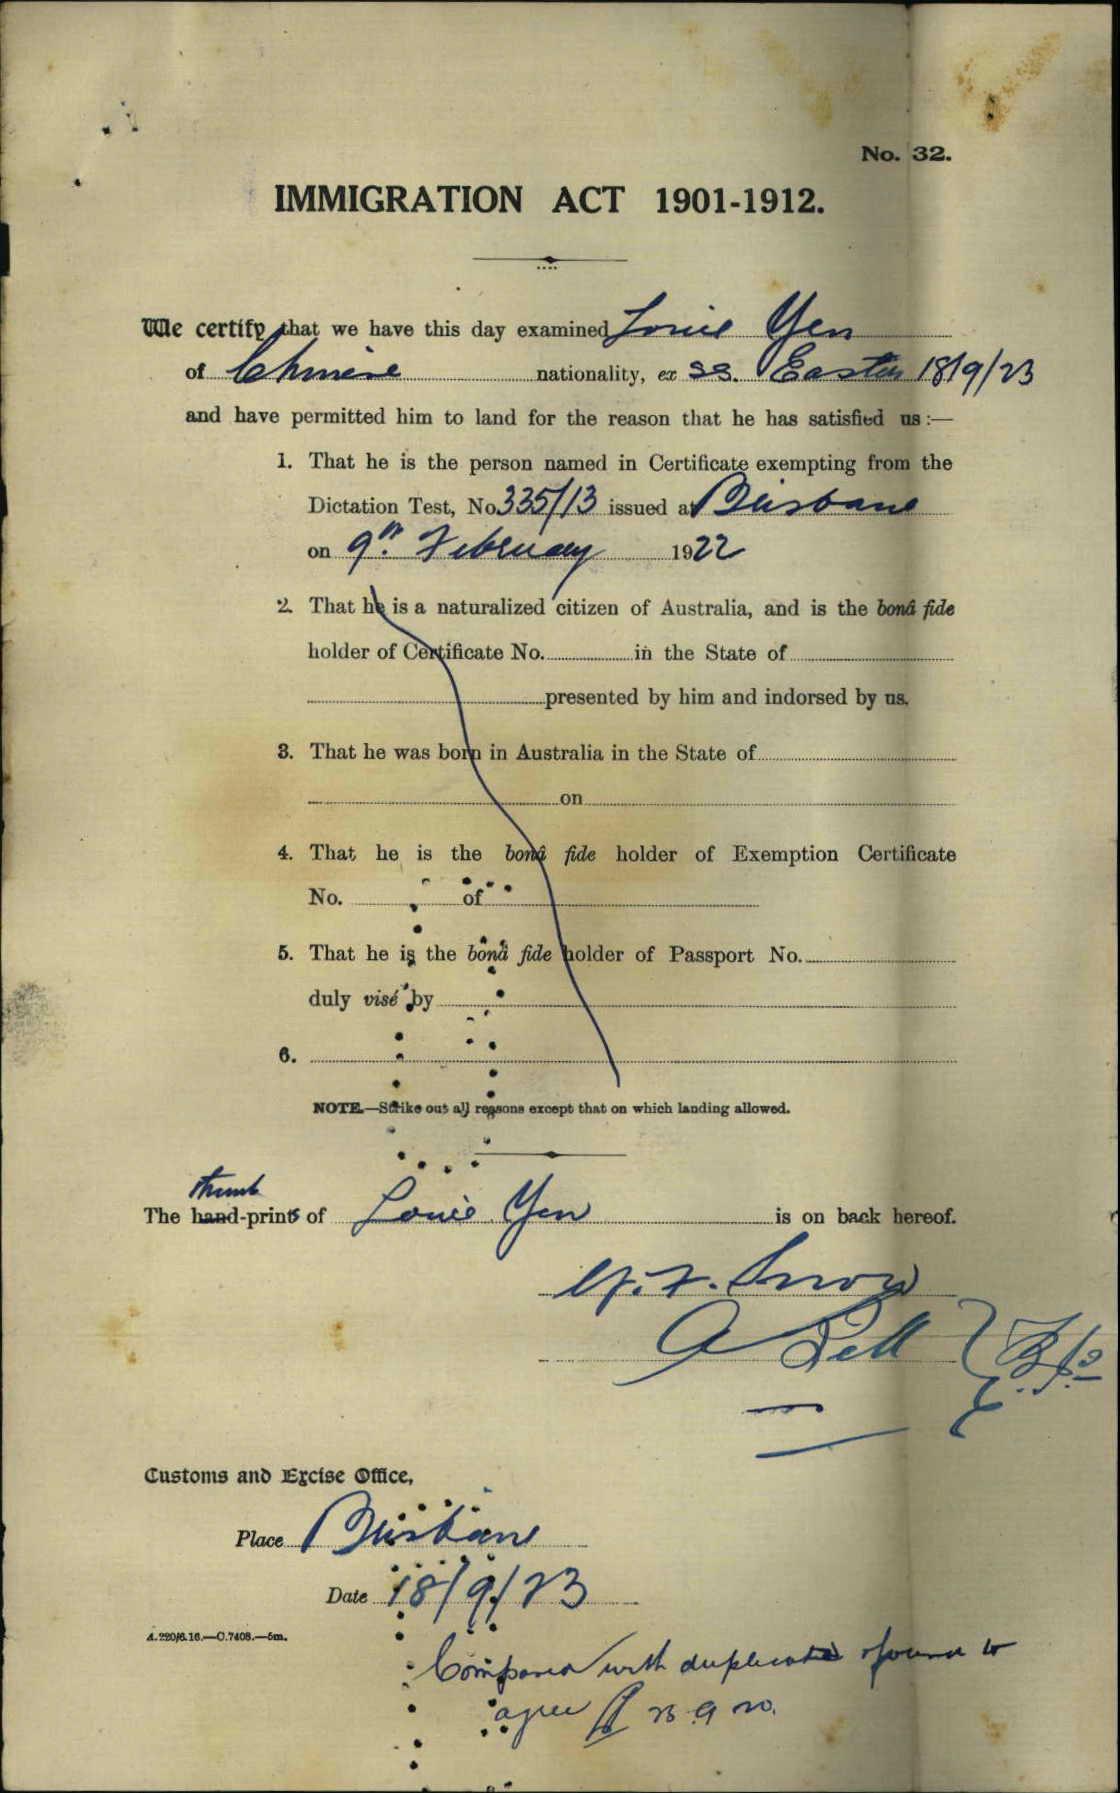 No. 32.
IMMIGRATION ACT 1901-1912.
We certify that we have this day examined Louie Yen
of Chinese nationality, ex SS. Eastern 18/9/23
and have permitted him to land for the reason that he has satisfied us :—
1. That he is the person named in Certificate exempting from the
Dictation Test, No. 335/13 issued at Brisbane
on 9th. February 1922
2. That he is a naturalized citizen of Australia, and is the bonâ fide
holder of Certificate No. in the State of
presented by him and indorsed by us.
3. That he was born in Australia in the State of
on
4. That he is the bonâ fide holder of Exemption Certificate
No. of
5. That he is the bonâ fide holder of Passport No.
duly visé by
6.
NOTE.—Strike out all reasons except that on which landing allowed.
thumb
The hand-prints of Louie Yen is on back hereof.
Snow
A Bell
Customs and Excise Office,
Place Brisbane
Date 18/9/23
A.220/6.16.—C.7408.—5m.
Compared with duplicate & found to
agree